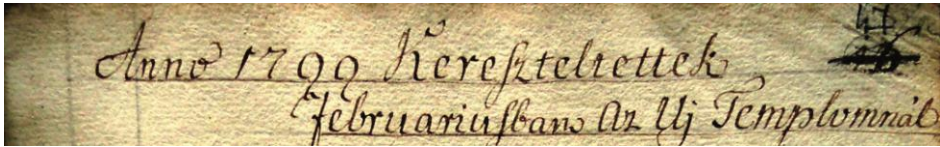 47
Anno 1799 Kereszteltettek
Februariusban Az Uj Templomnál